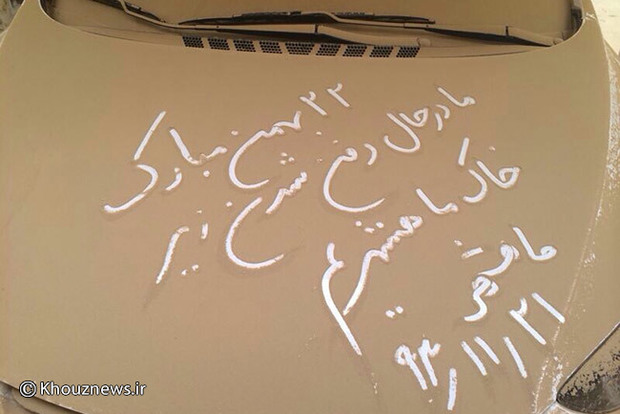 ۲۲ بهمن مبارک
ما در حال دفن شدن زیر
خاک ها هستیم
۹۳/۱۱/۲۱
© Khouznews.ir